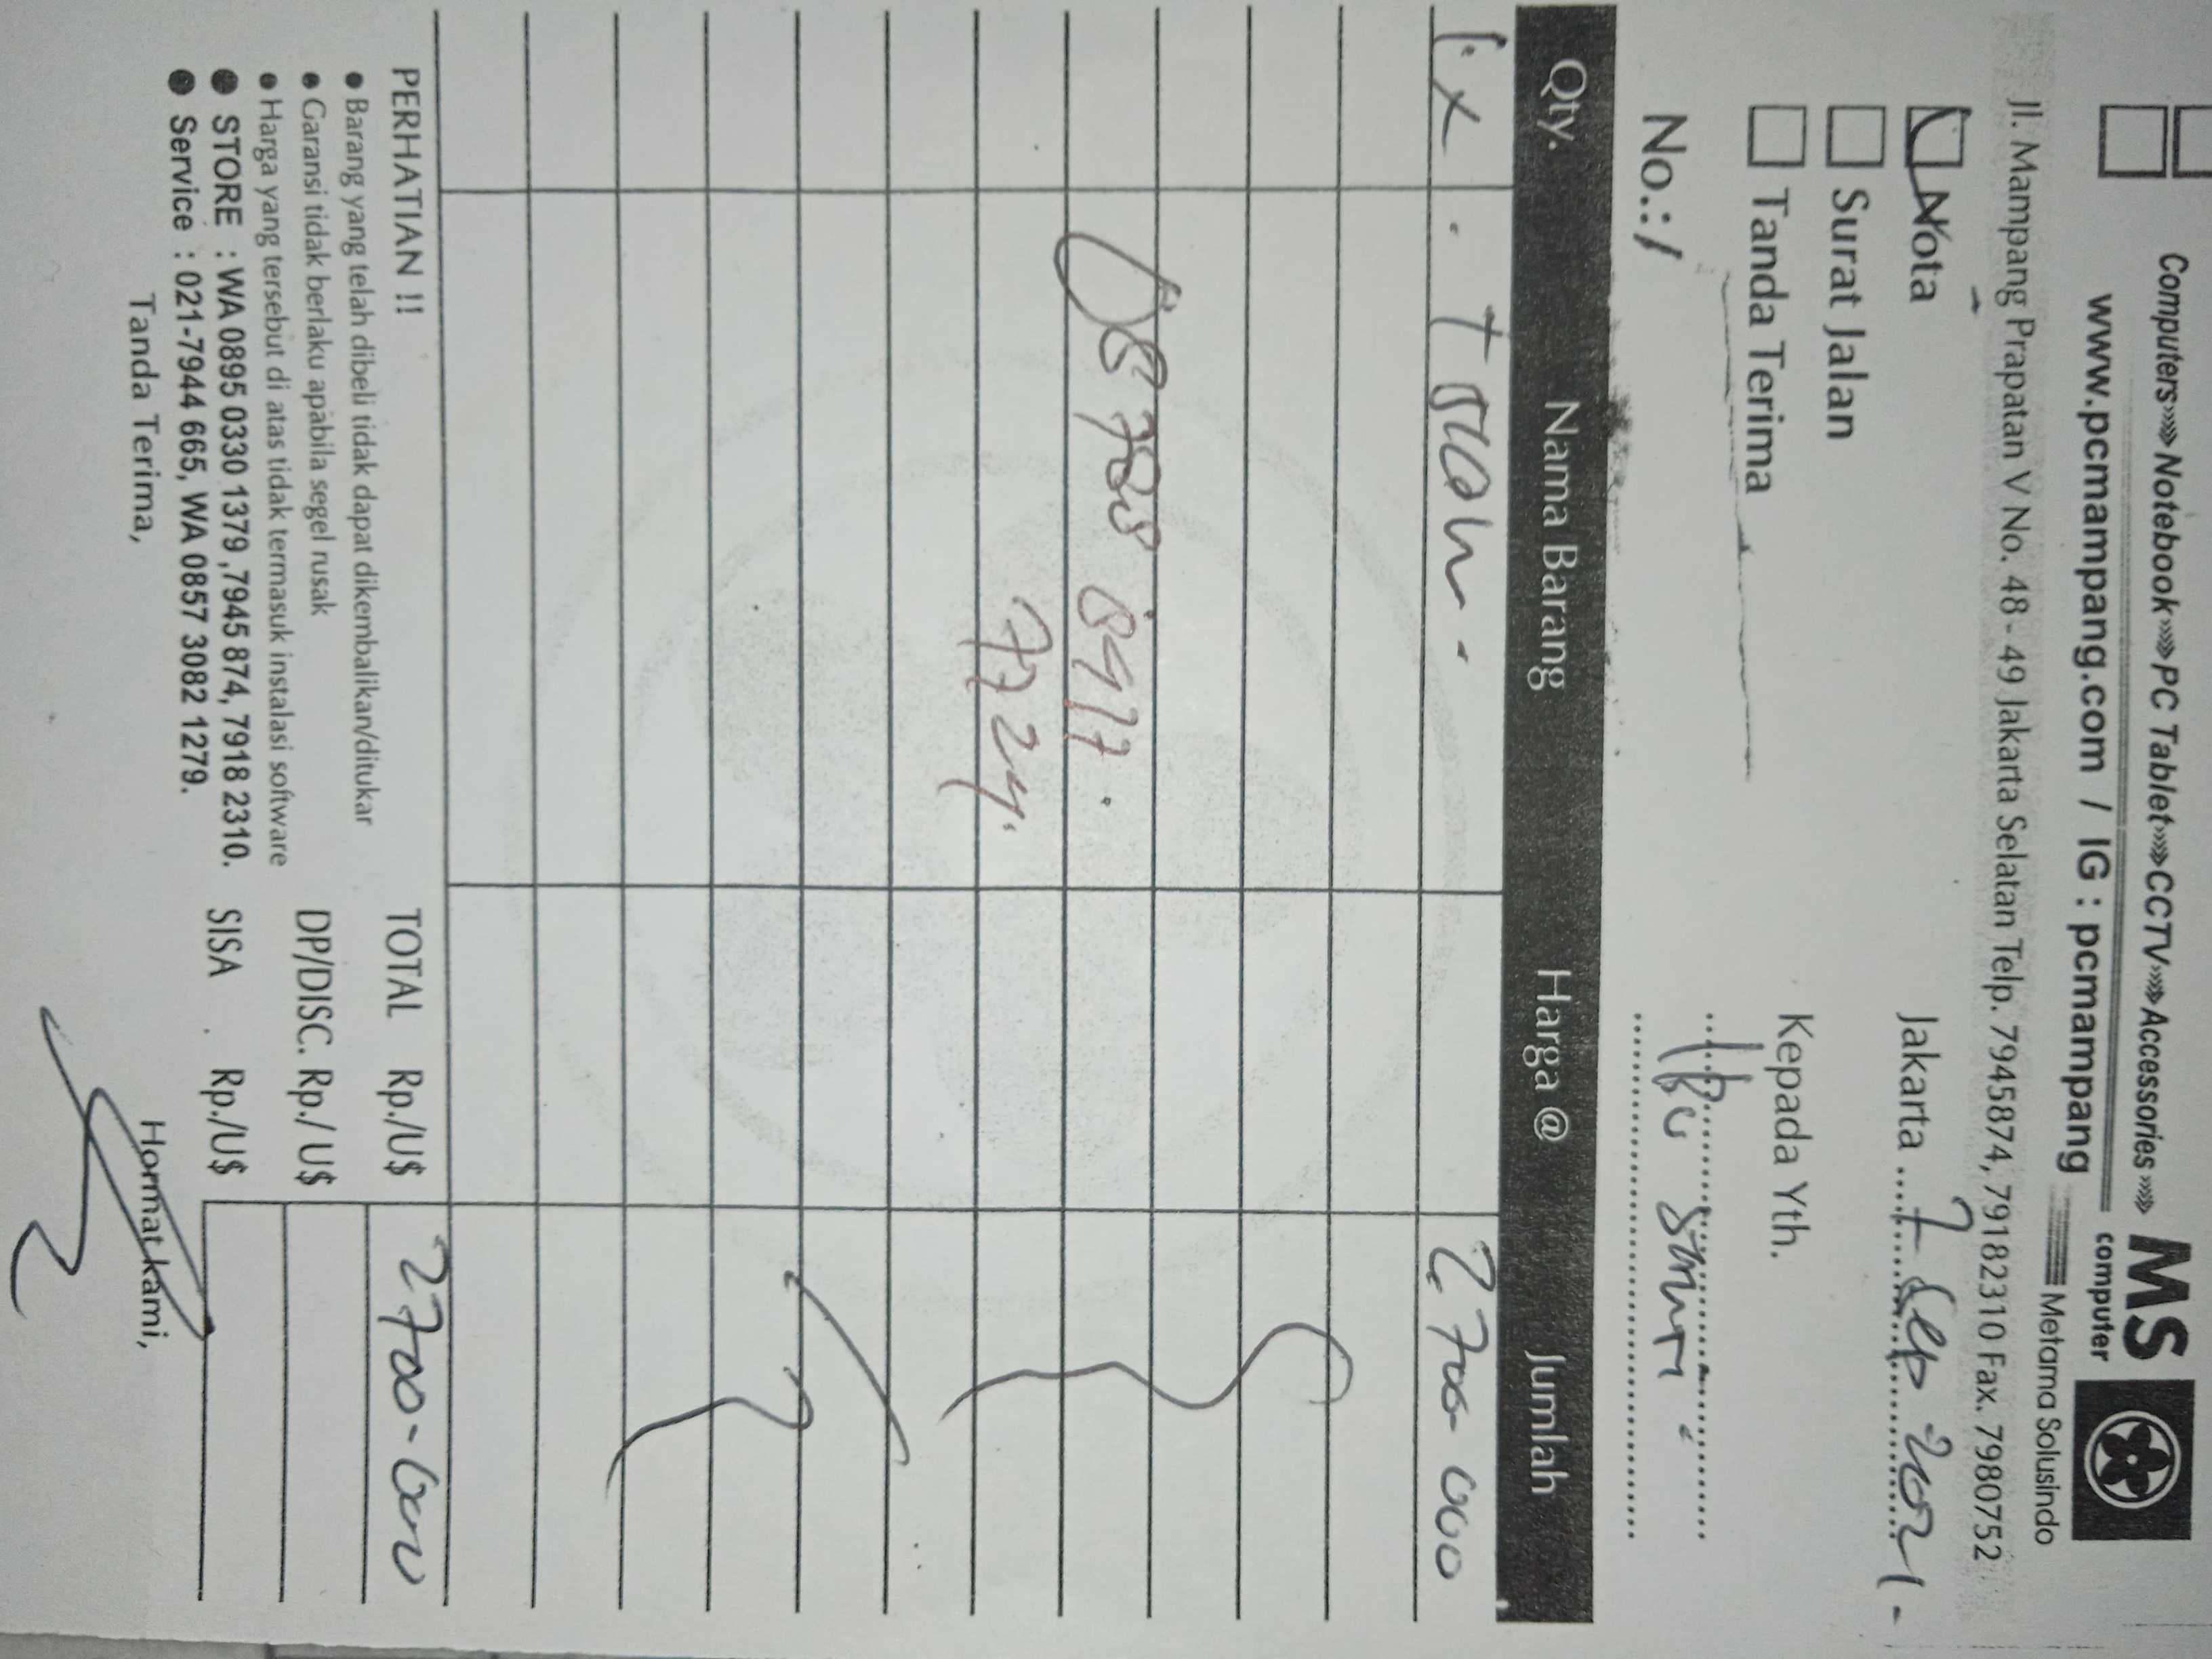 Computers»»»Notebook»»»PC Tablet»»»CCTV»»»Accessories»»» MS
computer
www.pcmampang.com / IG : pcmampang
Metama Solusindo
Jl. Mampang Prapatan V No. 48-49 Jakarta Selatan Telp. 7945874, 79182310 Fax. 7980752
Nota
Jakarta 7 Sep 2021-
Surat Jalan
Tanda Terima
Kepada Yth.
No.:
Qty. Nama Barang Harga @ Jumlah
1 x 2 700 000
7724.
PERHATIAN !!
TOTAL Rp./U$ 2700-000
• Barang yang telah dibeli tidak dapat dikembalikan/ditukar
• Garansi tidak berlaku apabila segel rusak
DP/DISC. Rp./ U$
• Harga yang tersebut di atas tidak termasuk instalasi software
• STORE : WA 0895 0330 1379 ,7945 874, 7918 2310.
SISA Rp./U$
• Service : 021-7944 665, WA 0857 3082 1279.
Tanda Terima,
Hormat kami,